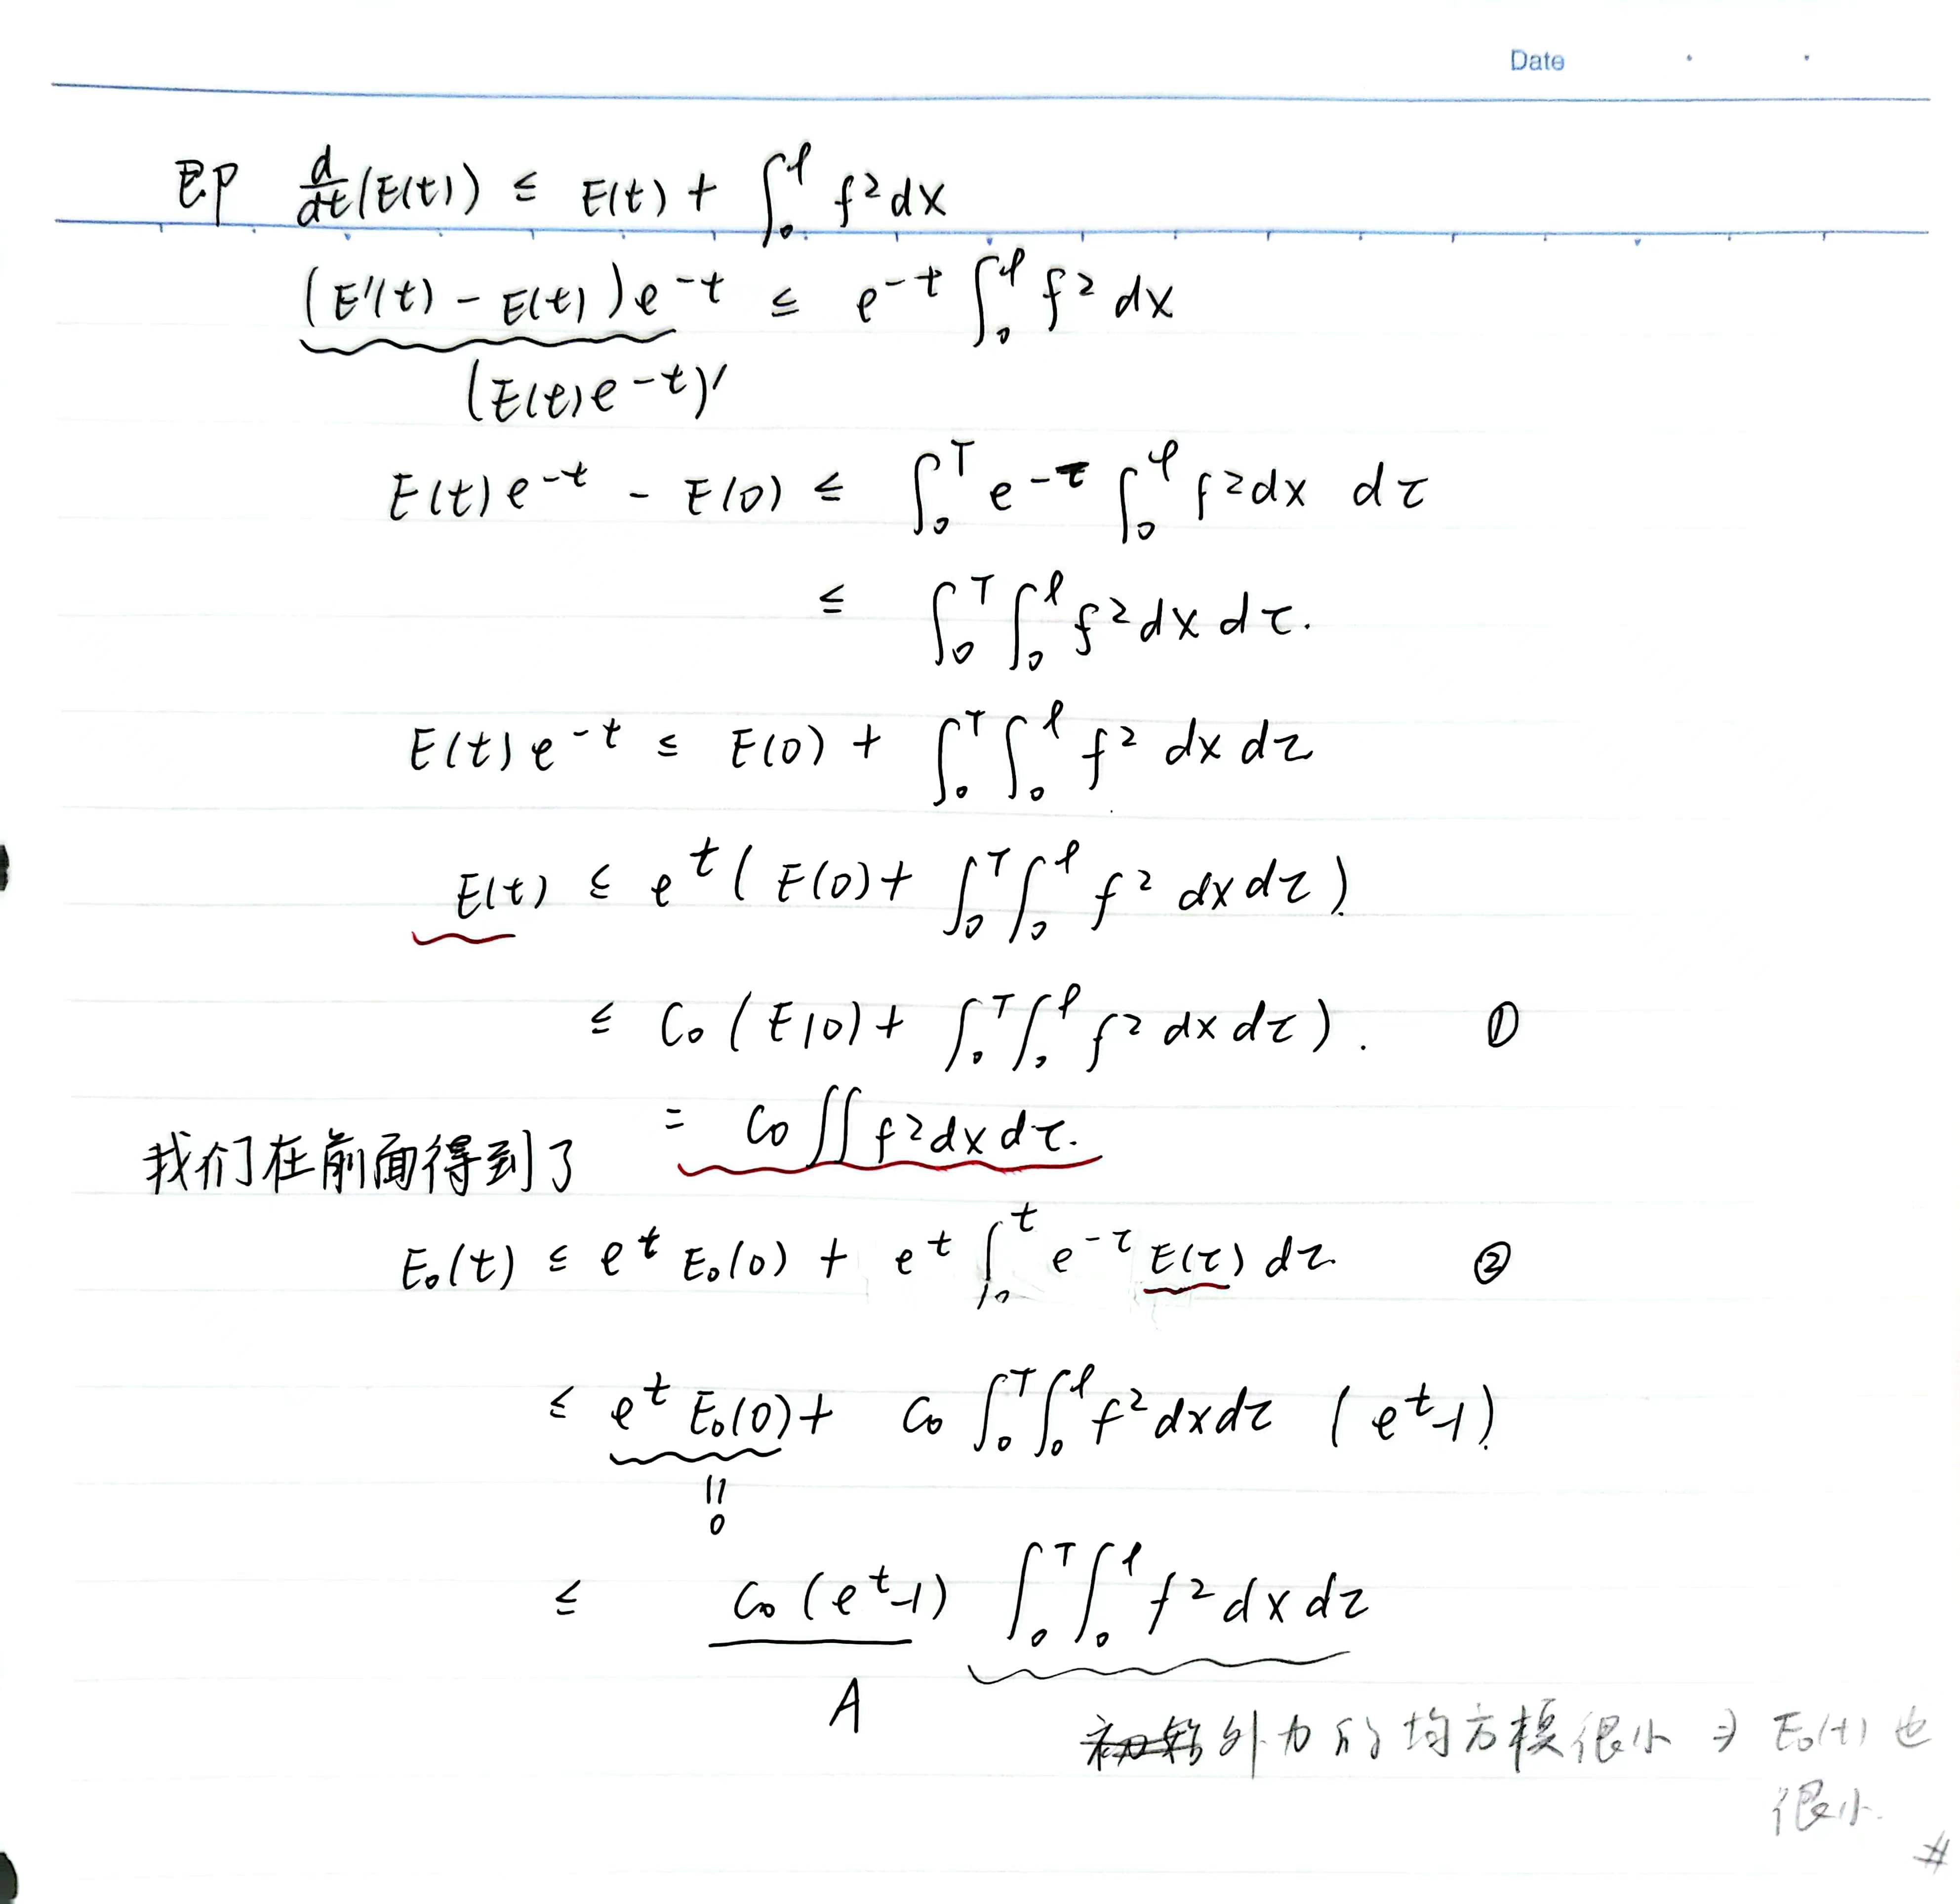 Date
即 d/dt(E(t)) ≤ E(t) + ∫₀^ℓ f²dx
(E'(t) - E(t))e^{-t} ≤ e^{-t} ∫₀^ℓ f² dx
(E(t)e^{-t})'
E(t)e^{-t} - E(0) ≤ ∫₀^T e^{-τ} ∫₀^ℓ f²dx dτ
≤ ∫₀^T ∫₀^ℓ f²dx dτ.
E(t)e^{-t} ≤ E(0) + ∫₀^T ∫₀^ℓ f² dx dτ
E(t) ≤ e^t (E(0) + ∫₀^T ∫₀^ℓ f² dx dτ).
≤ C₀ (E(0) + ∫₀^T ∫₀^ℓ f² dx dτ). ①
= C₀ ∬ f²dx dτ.
我们在前面得到了
E₀(t) ≤ e^t E₀(0) + e^t ∫₀^t e^{-τ} E(τ) dτ. ②
≤ e^t E₀(0) + C₀ ∫₀^T ∫₀^ℓ f²dxdτ (e^t-1).
||
0
≤ C₀ (e^t-1) ∫₀^T ∫₀^ℓ f² dx dτ
A
外力的均方模很小 ⇒ E₀(t) 也
很小.
#